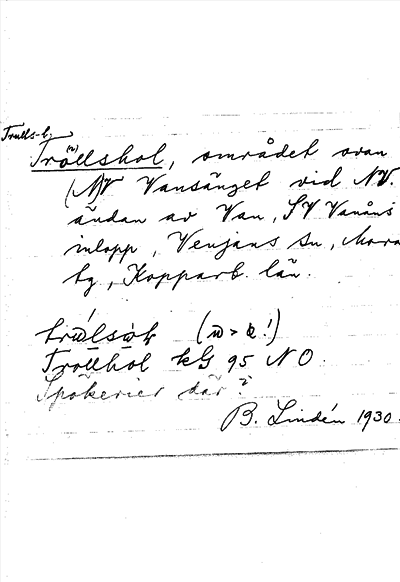 Trulls-h.
(u)
Trollshol, området ovan
(N)V Vansänget vid NV.
ändan av Van, SV Vanåns
inlopp, Venjans sn, Mora
hg, Kopparb. län.
Trollhol kG 95 NO.
Spökerier där?
B. Lindén 1930.